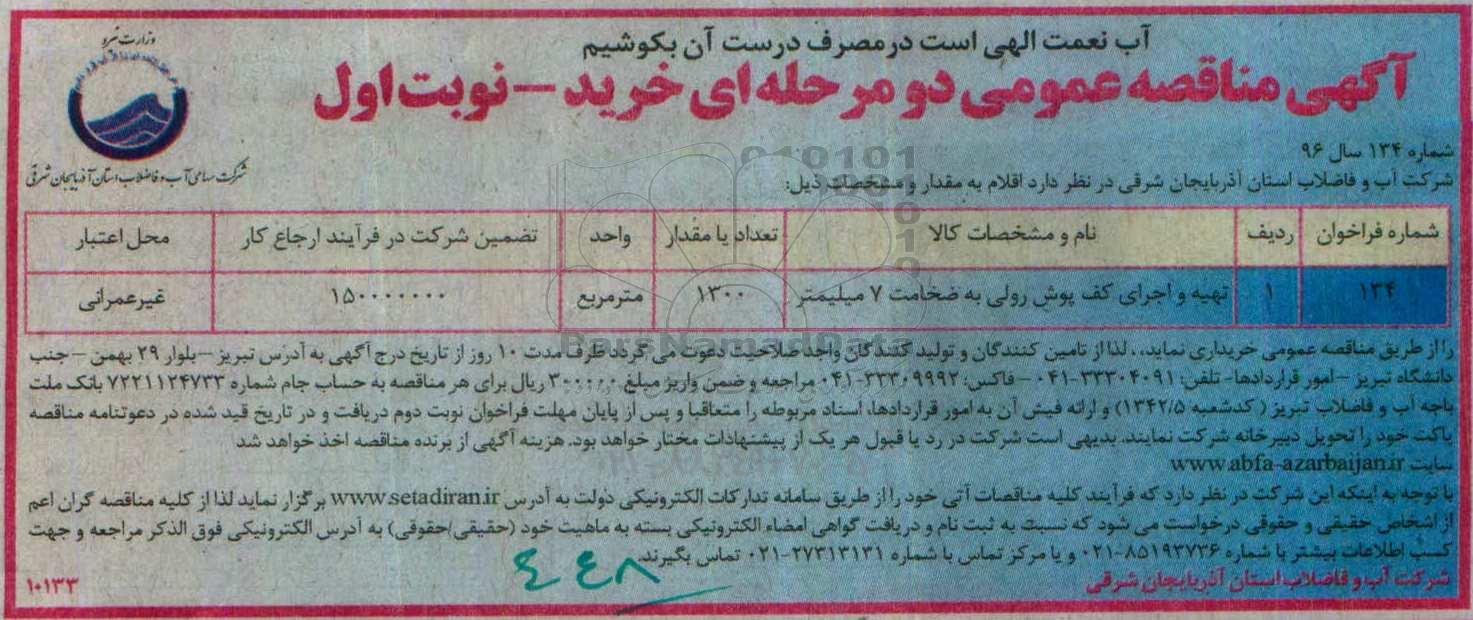 آب نعمت الهی است در مصرف درست آن بکوشیم
وزارت نیرو
آگهی مناقصه عمومی دو مرحله ای خرید – نوبت اول
شماره ۱۳۴ سال ۹۶
شرکت سهامی آب و فاضلاب استان آذربایجان شرقی
شرکت آب و فاضلاب استان آذربایجان شرقی در نظر دارد اقلام به مقدار و مشخصات ذیل:
شماره فراخوان ردیف نام و مشخصات کالا تعداد یا مقدار واحد تضمین شرکت در فرآیند ارجاع کار محل اعتبار
۱۳۴ ۱ تهیه و اجرای کف پوش رولی به ضخامت ۷ میلیمتر ۱۳۰۰ مترمربع ۱۵۰۰۰۰۰۰۰ غیرعمرانی
ParsNamadData
را از طریق مناقصه عمومی خریداری نماید،. لذا از تامین کنندگان و تولید کنندگان واجد صلاحیت دعوت می گردد ظرف مدت ۱۰ روز از تاریخ درج آگهی به آدرس تبریز –بلوار ۲۹ بهمن –جنب
دانشگاه تبریز –امور قراردادها- تلفن: ۳۳۳۰۴۰۹۱-۰۴۱ –فاکس: ۳۳۳۰۹۹۹۲-۰۴۱ مراجعه و ضمن واریز مبلغ ۳۰۰۰۰۰ ریال برای هر مناقصه به حساب جام شماره ۷۲۲۱۱۲۴۷۳۳ بانک ملت
باجه آب و فاضلاب تبریز (کدشعبه ۱۳۴۲/۵) و ارائه فیش آن به امور قراردادها، اسناد مربوطه را متعاقبا و پس از پایان مهلت فراخوان نوبت دوم دریافت و در تاریخ قید شده در دعوتنامه مناقصه
پاکت خود را تحویل دبیرخانه شرکت نمایند. بدیهی است شرکت در رد یا قبول هر یک از پیشنهادات مختار خواهد بود. هزینه آگهی از برنده مناقصه اخذ خواهد شد
سایت www.abfa-azarbaijan.ir
با توجه به اینکه این شرکت در نظر دارد که فرآیند کلیه مناقصات آتی خود را از طریق سامانه تدارکات الکترونیکی دولت به آدرس www.setadiran.ir برگزار نماید لذا از کلیه مناقصه گران اعم
از اشخاص حقیقی و حقوقی درخواست می شود که نسبت به ثبت نام و دریافت گواهی امضاء الکترونیکی بسته به ماهیت خود (حقیقی/حقوقی) به آدرس الکترونیکی فوق الذکر مراجعه و جهت
کسب اطلاعات بیشتر با شماره ۸۵۱۹۳۷۳۶-۰۲۱ و یا مرکز تماس با شماره ۲۷۳۱۳۱۳۱-۰۲۱ تماس بگیرند.
شرکت آب و فاضلاب استان آذربایجان شرقی
۱۰۱۳۳